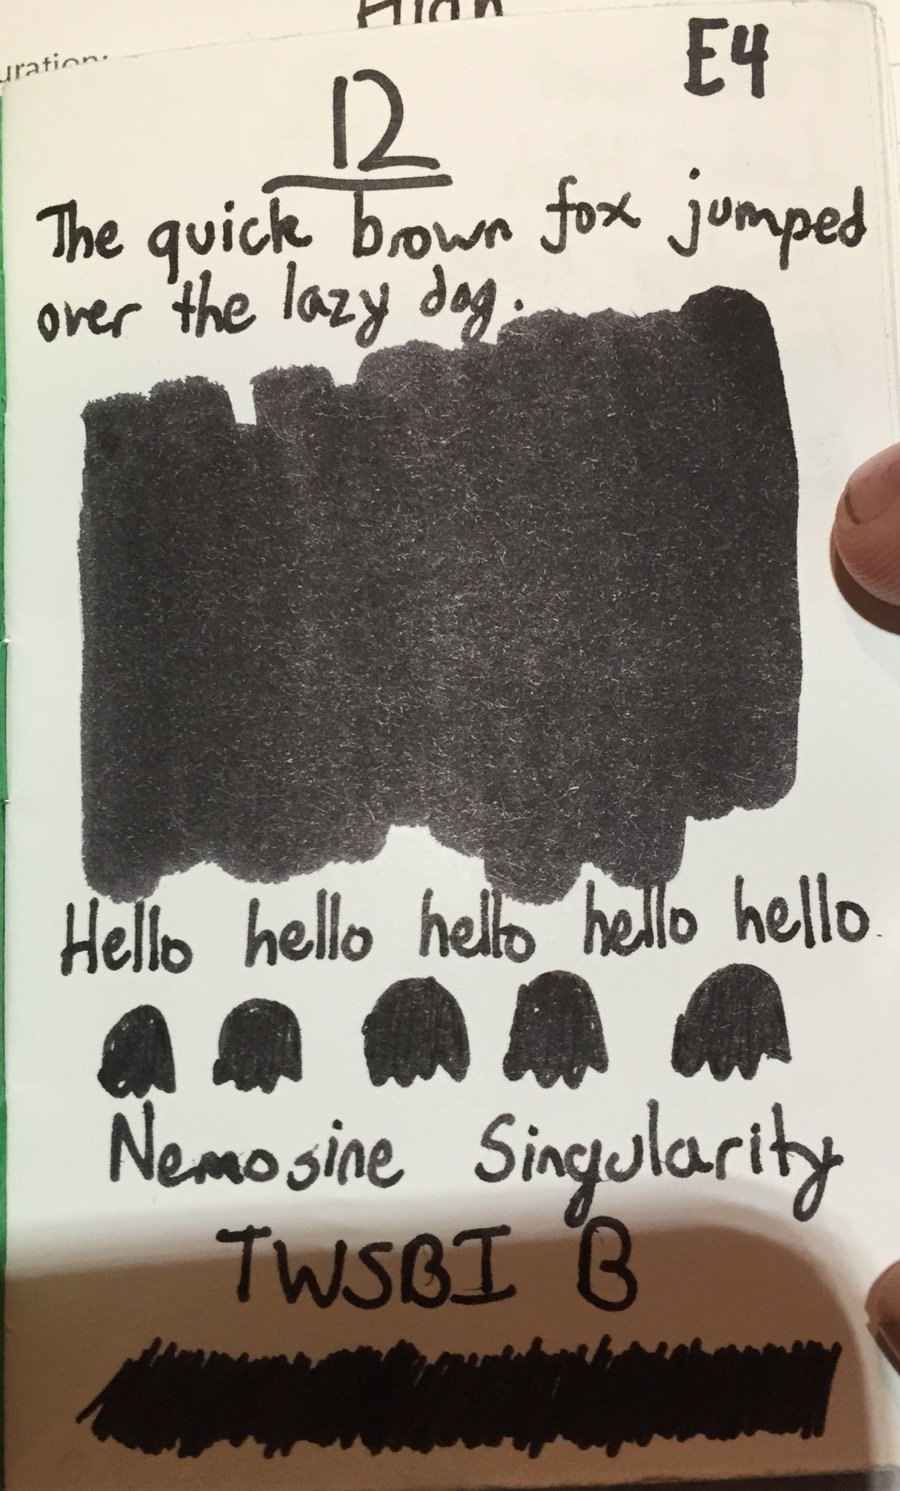 High
uration:
E4
12
The quick brown fox jumped
over the lazy dog.
Hello hello hello hello hello.
Nemosine Singularity
TWSBI B